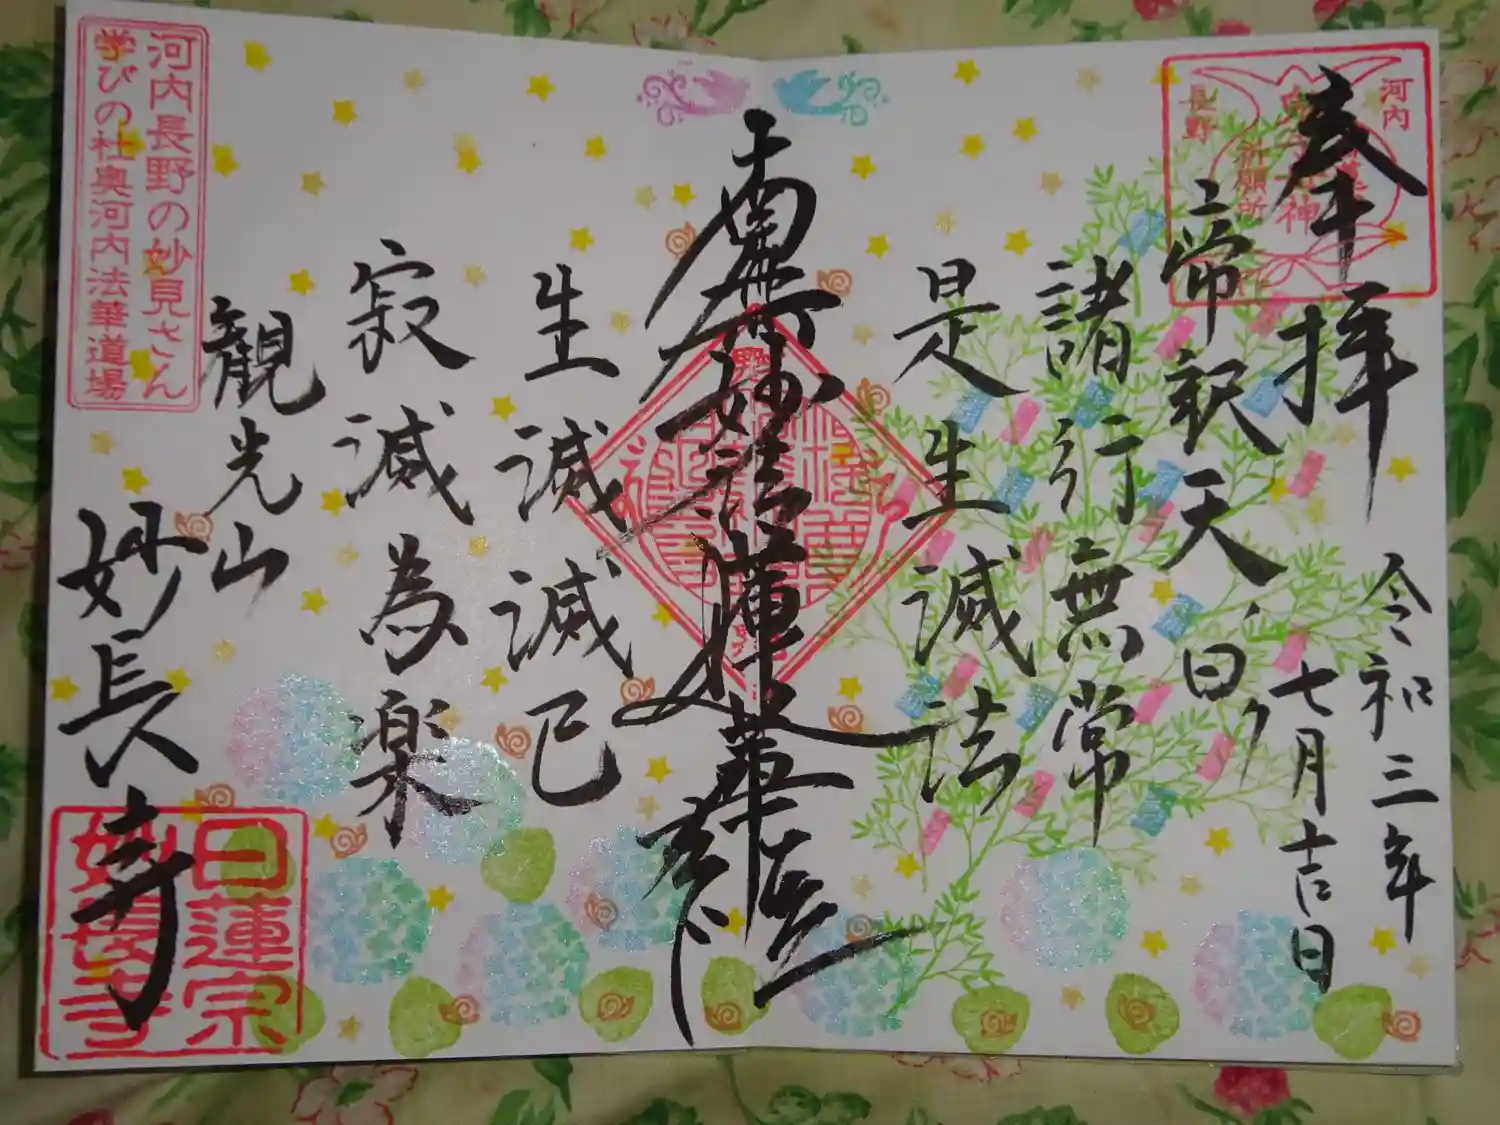 奉拝
令和三年
七月吉日
帝釈天曰ク
諸行無常
是生滅法
南無妙法蓮華経
生滅滅已
寂滅為楽
観光山
妙長寺
河内
長野
祈願所
河内長野の妙見さん
学びの杜奥河内法華道場
日蓮宗
妙長寺